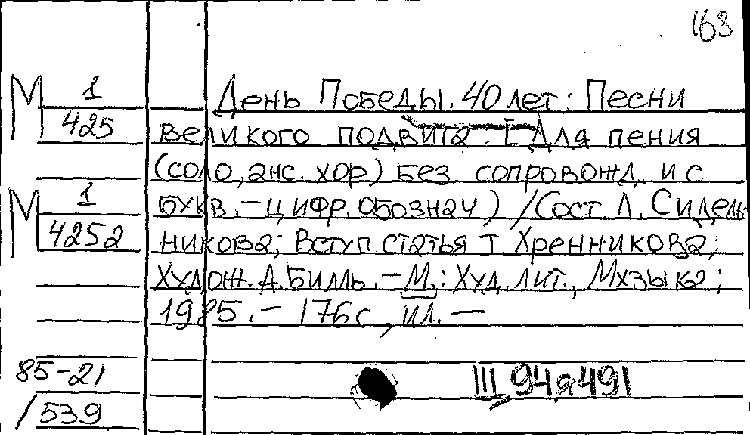 163
М 1
425
День Победы. 40 лет: Песни
великого подвига. [Для пения
(соло, анс. хор) без сопровожд. и с
букв.-цифр. обознач) /Сост. Л. Сидель
М 1
4252
никова; Вступ статья Т Хренникова;
Худож. А. Билль. – М.: Худ. лит., Мхзыка;
1985. – 176с, ил. –
85-21
/539
III 94я491